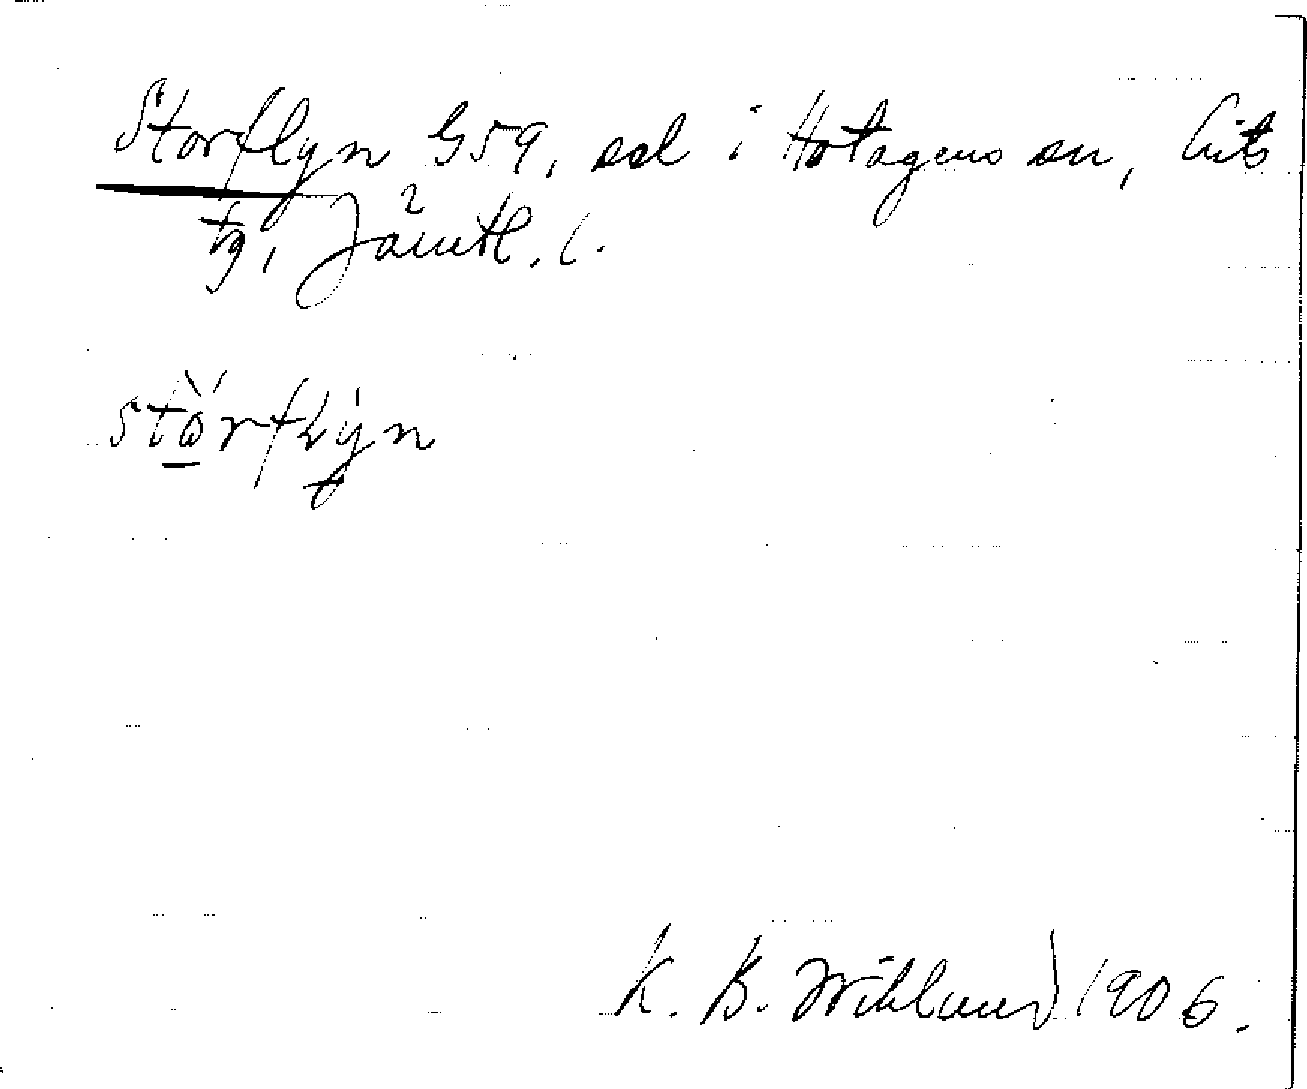 Storflyn G59, sel i Hotagens sn, Lits
tg, Jämtl. l.
K. B. Wiklund 1906.